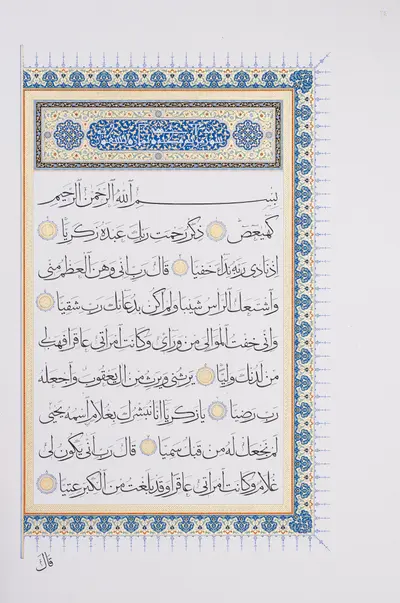 بِسْمِ ٱللَّهِ ٱلرَّحْمَٰنِ ٱلرَّحِيمِ
كهيعص ذكر رحمت ربك عبده زكريا
إذ نادى ربه نداء خفيا قال رب إني وهن العظم مني
واشتعل الرأس شيبا ولم أكن بدعائك رب شقيا
وإني خفت الموالي من وراءي وكانت امرأتي عاقرا فهب لي
من لدنك وليا يرثني ويرث من آل يعقوب واجعله
رب رضيا يا زكريا إنا نبشرك بغلام اسمه يحيى
لم نجعل له من قبل سميا قال رب أنى يكون لي
غلام وكانت امرأتي عاقرا وقد بلغت من الكبر عتيا
قال